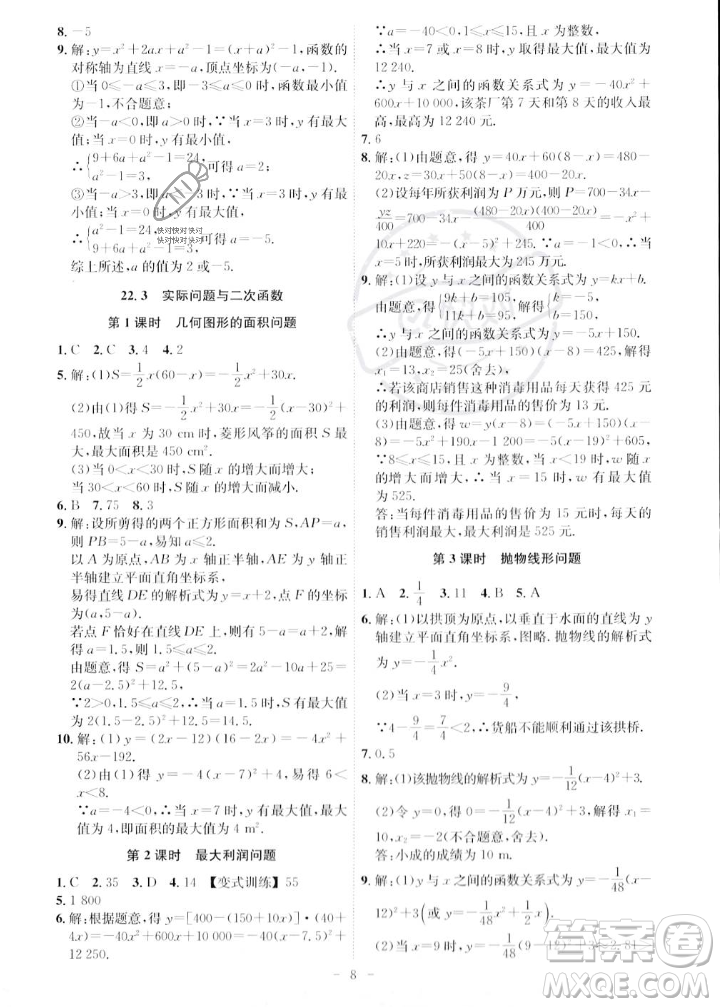 8. －5
9. 解：y＝x²＋2ax＋a²－1＝(x＋a)²－1，函数的
对称轴为直线 x＝－a，顶点坐标为(－a，－1).
①当 0≤－a≤3，即－3≤a≤0 时，函数最小值
为－1，不合题意；
②当－a＜0，即 a＞0 时，∵当 x＝3 时，y 有最大
值；当 x＝0 时，y 有最小值，
∴{9＋6a＋a²－1＝24, a²－1＝3, 可得 a＝2；
③当－a＞3，即 a＜－3 时，∵当 x＝3 时，y 有最
小值；当 x＝0 时，y 有最大值，
∴{a²－1＝24, 9＋6a＋a²－1＝3, 可得 a＝－5.
综上所述，a 的值为 2 或－5.
22.3 实际问题与二次函数
第 1 课时 几何图形的面积问题
1. C 2. C 3. 4 4. 2
5. 解：(1)S＝1/2x(60－x)＝－1/2x²＋30x.
(2)由(1)得 S＝－1/2x²＋30x＝－1/2(x－30)²＋450,
故当 x 为 30 cm 时，菱形风筝的面积 S 最
大，最大面积是 450 cm².
(3)当 0＜x＜30 时，S 随 x 的增大而增大；
当 30＜x＜60 时，S 随 x 的增大而减小.
6. B 7. 75 8. 3
9. 解：设所剪得的两个正方形面积和为 S，AP＝a，
则 PB＝5－a，易知 a≤2.
以 A 为原点，AB 为 x 轴正半轴，AE 为 y 轴正
半轴建立平面直角坐标系，
易得直线 DE 的解析式为 y＝x＋2，
若点 F 恰好在直线 DE 上，则 5－a＝a＋2，则
a＝1.5，所以 1.5≤a≤2，
由题意，得 S＝a²＋(5－a)²＝2a²－10a＋25＝
2(a－2.5)²＋12.5,
∵2＞0，1.5≤a≤2，∴当 a＝1.5 时，S 有最大值
为 2(1.5－2.5)²＋12.5＝14.5.
10. 解：(1)y＝(2x－12)(16－2x)＝－4x²＋
56x－192.
(2)由(1)得 y＝－4(x－7)²＋4，由题意，得 6＜
x＜8.
∵a＝－4＜0，∴当 x＝7 时，y 有最大值为 4.
故当 x 为 7 时，面积的最大值为 4 m².
第 2 课时 最大利润问题
1. C 2. 35 3. D 4. 14 【变式训练】55
5. 1 800
6. 解：根据题意，得 y＝[400－(150＋10x)]·(40＋
4x)＝－40x²＋600x＋10 000＝－40(x－7.5)²＋
12 250.
∵a＝－40＜0，且 x 为整数，
∴当 x＝7 或 x＝8 时，y 取得最大值，最大值为
12 240.
∴y 与 x 之间的函数关系式为 y＝－40x²＋
600x＋10 000，该茶厂第 7 天和第 8 天的收入最
高，最高为 12 240 元.
7. 6
8. 解：(1)由题意，得 y＝40x＋60(8－x)＝480－
20x，z＝400－20x.
(2)设每年所获利润为 P 万元，则 P＝700－34x－
yz/40＝700－34x－(480－20x)(400－20x)/40＝－10x²＋
106x＋220＝－10(x－5.3)²＋
9. 解：(1)设 y 与 x 之间的函数关系式为 y＝kx＋b.
(2)由题意，得(－5x＋150)(x－8)＝425，解得
x₁＝13，x₂＝25(舍去)，
∴若该商店销售这种消毒用品每天获得 425 元
的利润，则每件消毒用品的售价为 13 元.
(3)由题意，得 w＝y(x－8)＝(－5x＋150)(x－
8)＝－5x²＋190x－1 200＝－5(x－19)²＋605,
∵8≤x≤15，且 x 为整数，当 x＜19 时，w 随 x
的增大而增大，∴当 x＝15 时，w 有最大值
为 525.
答：当每件消毒用品的售价为 15 元时，每天的
销售利润最大，最大利润是 525 元.
第 3 课时 抛物线形问题
1. A 2. 1/4 3. 11 4. B 5. A
6. 解：(1)以拱顶为原点，以垂直于水面的直线为 y
轴建立平面直角坐标系，图略. 抛物线的解析式
为 y＝－1/4x².
(2)当 x＝3 时，y＝－9/4，
∵4－9/4＝7/4＜2，∴货船不能顺利过该拱桥.
7. 0.5
8. 解：(1)该抛物线的解析式为 y＝－1/12(x－4)²＋3.
(2)令 y＝0，得－1/12(x－4)²＋3＝0，解得 x₁＝10，
x₂＝－2(不合题意，舍去).
答：小成的成绩为 10 m.
9. 解：(1)y 与 x 之间的函数关系式为 y＝－1/48(x－
12)²＋3(或 y＝－1/48x²＋1/2x).
(2)由(1)得，当 x＝9 时，y＝
－ 8 －
快对快对快对
快对快对快对
答案圈